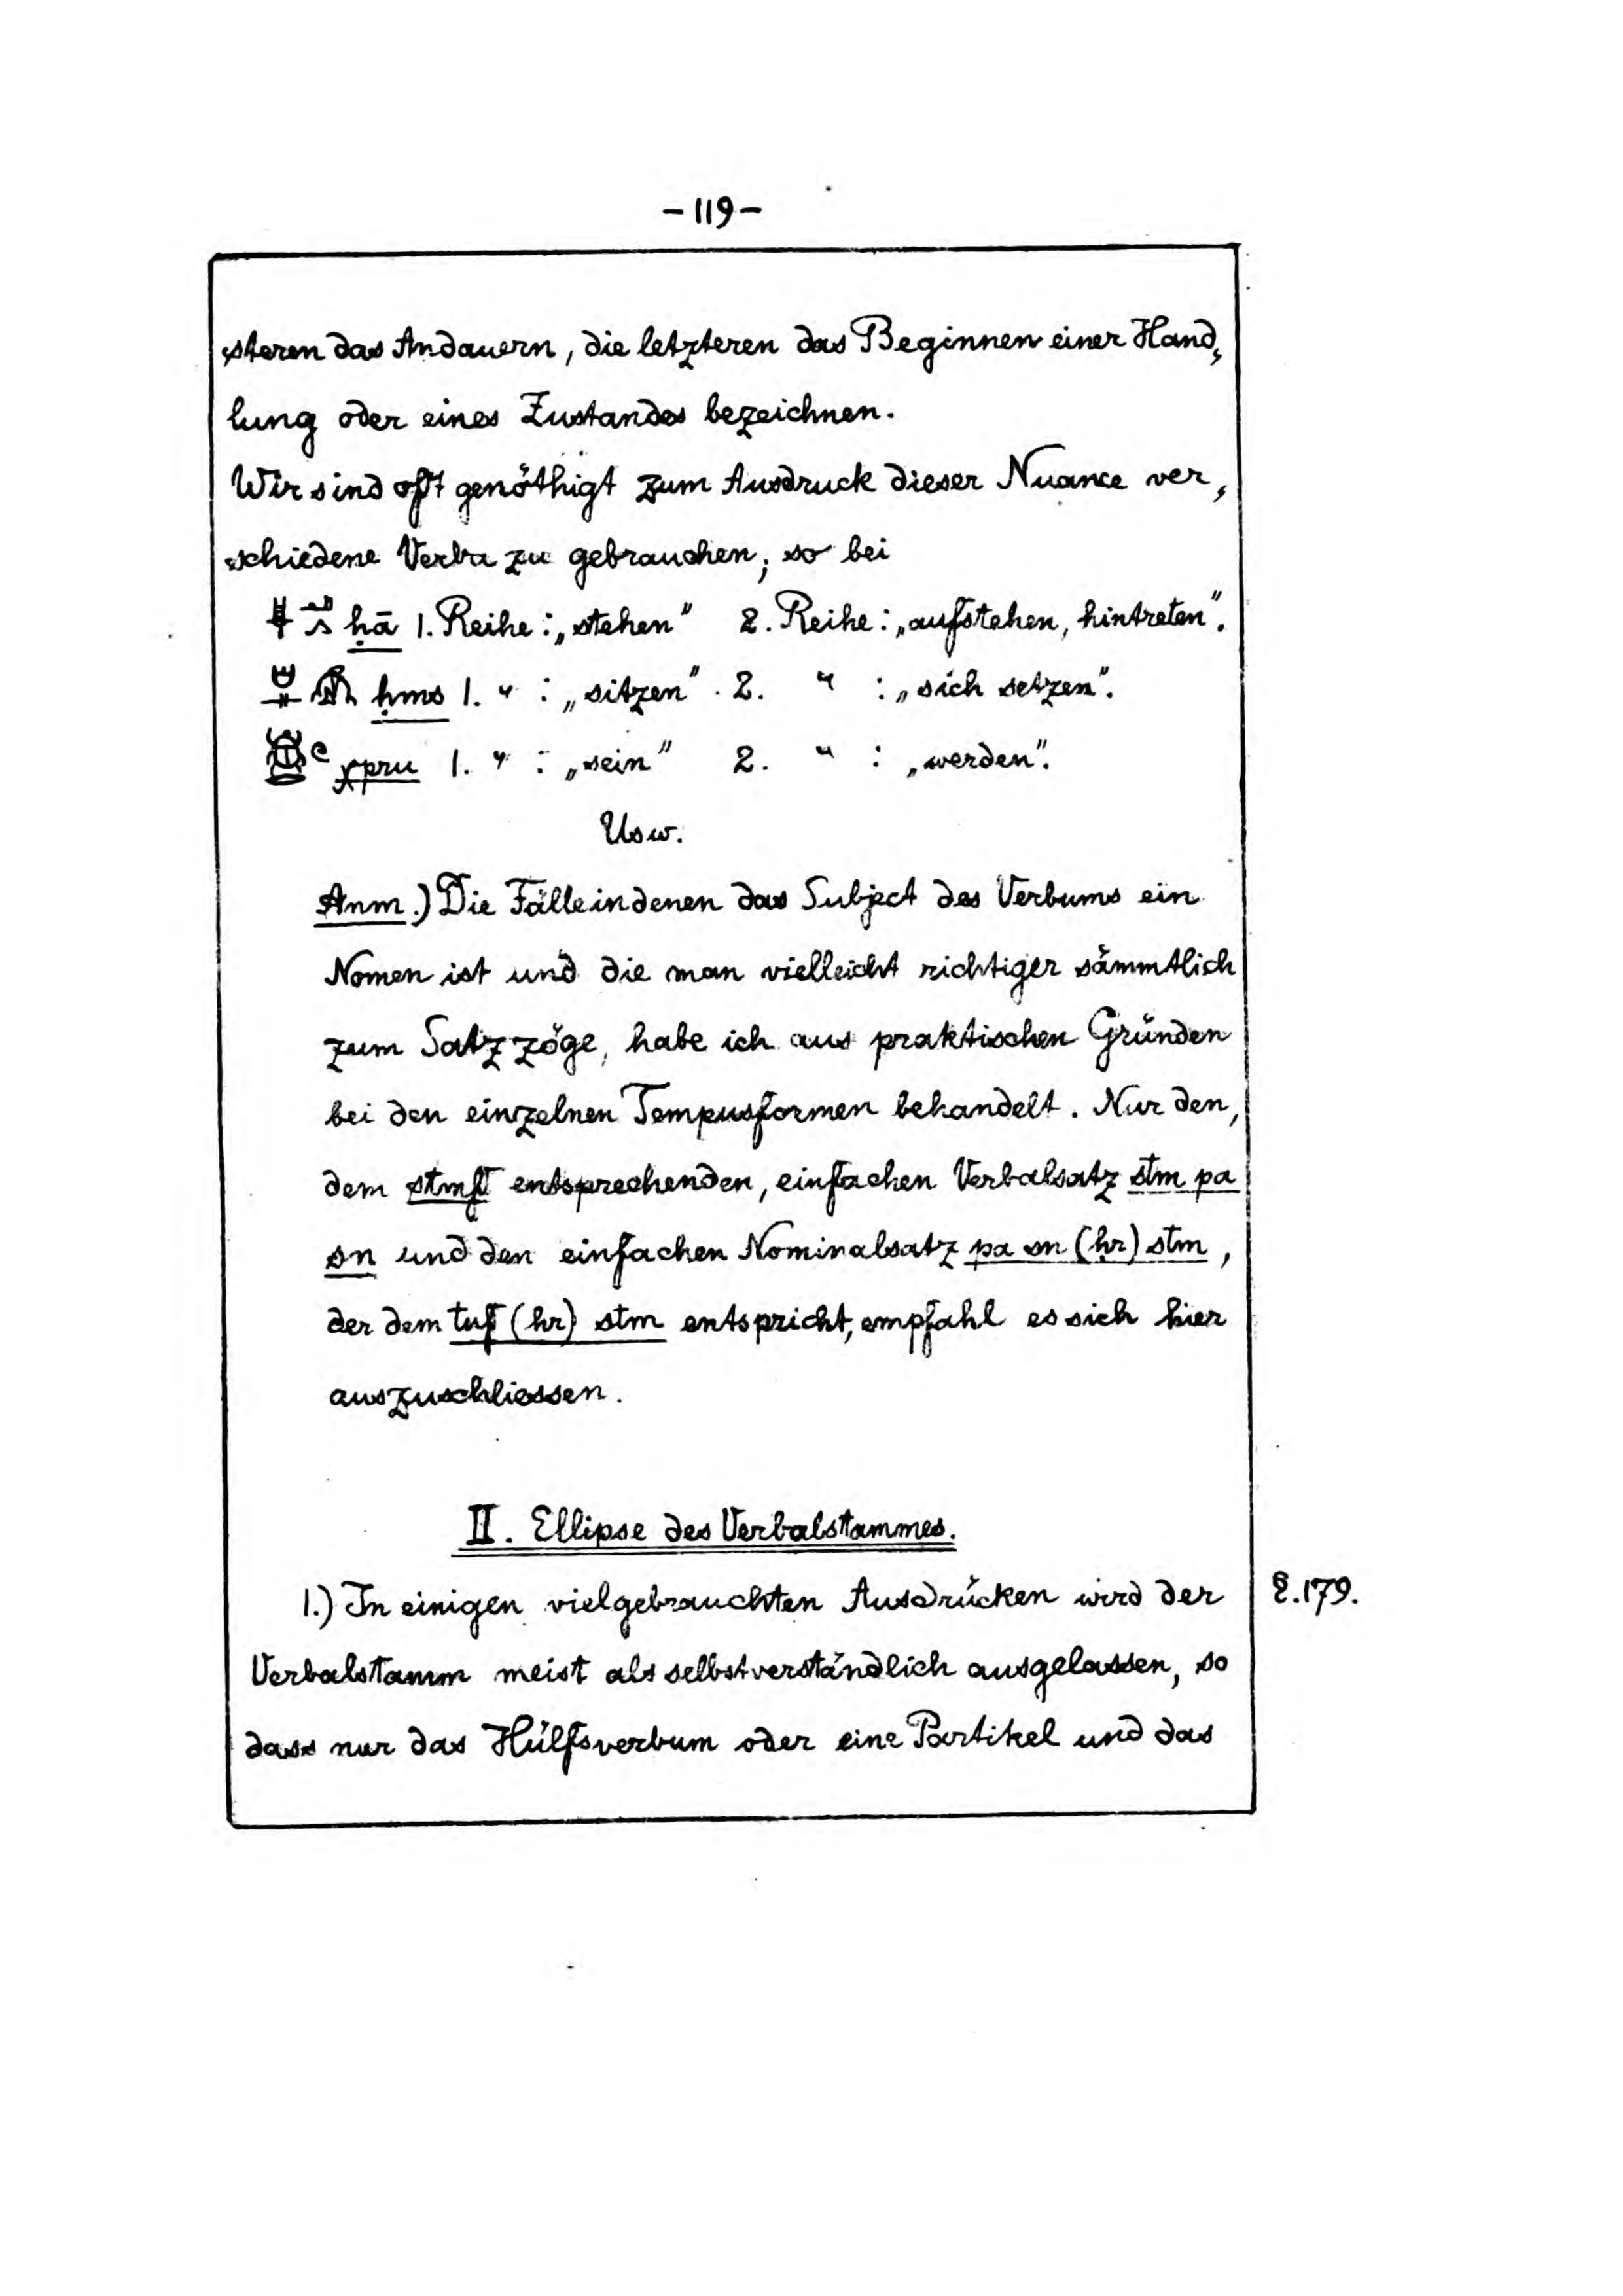 -119-
steren das Andauern, die letzteren das Beginnen einer Hand,
lung oder eines Zustandes bezeichnen.
Wir sind oft genöthigt zum Ausdruck dieser Nuance ver,
schiedene Verba zu gebrauchen, so bei
ḥā 1. Reihe: „stehen" 2. Reihe: „aufstehen, hintreten".
ḥms 1. " : „sitzen" 2. " : „sich setzen".
χpru 1. " : „sein" 2. " : „werden".
Usw.
Anm.) Die Fälle in denen das Subject des Verbums ein
Nomen ist und die man vielleicht richtiger sämmtlich
zum Satz zöge, habe ich aus praktischen Gründen
bei den einzelnen Tempusformen behandelt. Nur den,
dem stmf entsprechenden, einfachen Verbalsatz stm pa
sn und den einfachen Nominalsatz pa sn (ḥr) stm,
der dem tuf (ḥr) stm entspricht, empfahl es sich hier
auszuschliessen.
II. Ellipse des Verbalstammes.
1.) In einigen vielgebrauchten Ausdrücken wird der §.179.
Verbalstamm meist als selbstverständlich ausgelassen, so
dass nur das Hülfsverbum oder eine Partikel und das